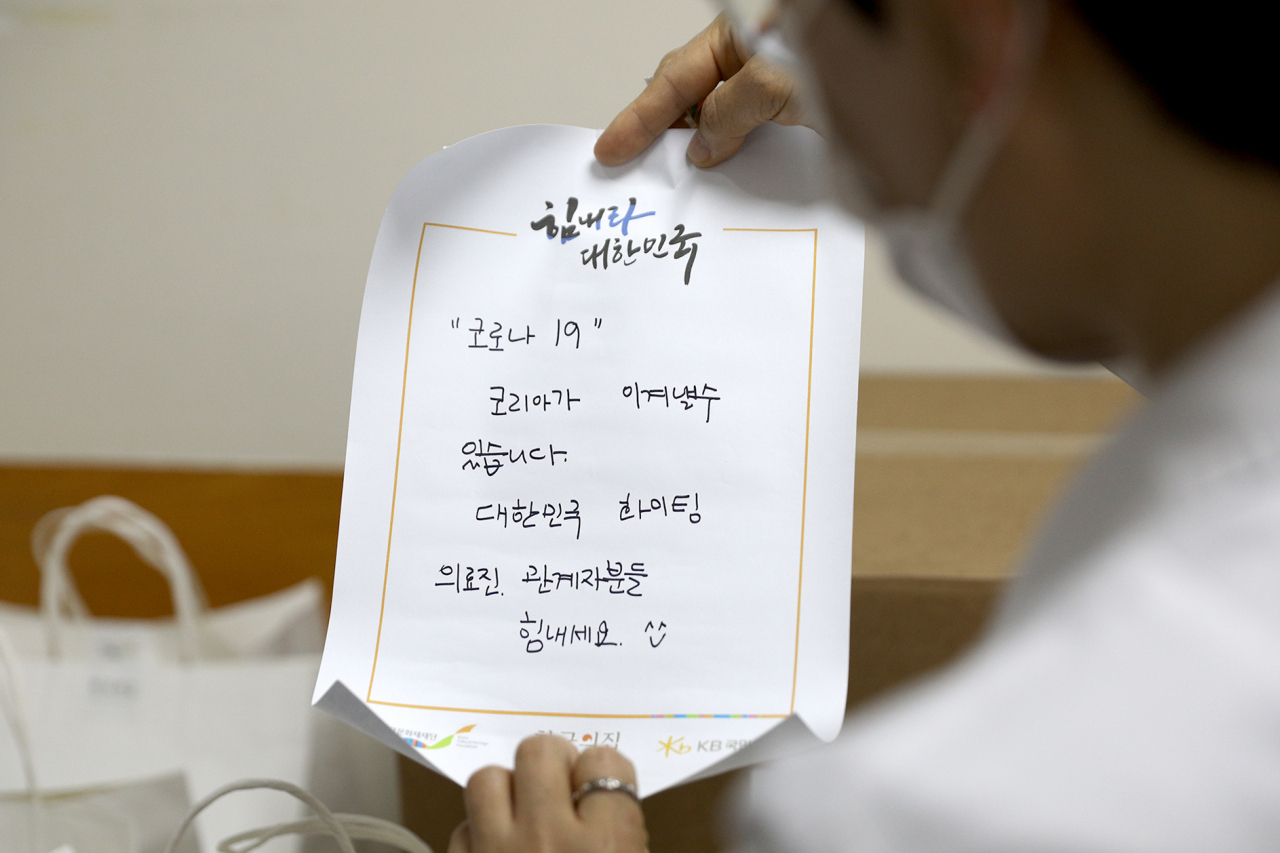 힘내라
대한민국
"코로나 19"
코리아가 이겨낼수
있습니다.
대한민국 화이팅
의료진. 관계자분들
힘내세요. ^^
문화재재단
한국의집
KB 국민